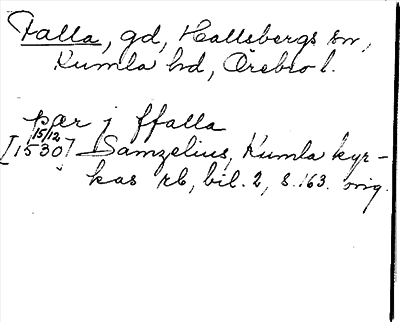 Falla, gd, Hallsbergs sn,
Kumla hd, Örebro l.
pær j ffalla
15/12
[1530] Samzelius, Kumla kyr-
kas rb, bil. 2, s. 163. orig.